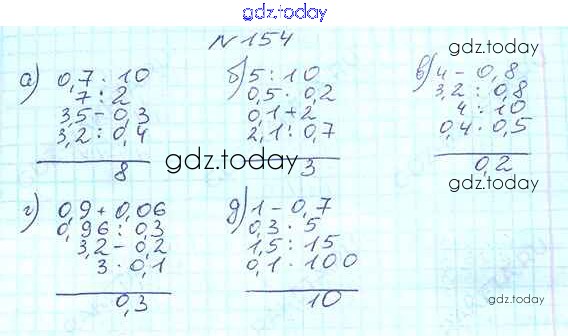 gdz.today
N 154
gdz.today
а) 0,7 : 10
7 : 2
3,5 - 0,3
3,2 : 0,4
8
б) 5 : 10
0,5 · 0,2
0,1 + 2
2,1 : 0,7
3
в) 4 - 0,8
3,2 : 0,8
4 : 10
0,4 · 0,5
0,2
gdz.today
gdz.today
г) 0,9 + 0,06
0,96 : 0,3
3,2 - 0,2
3 · 0,1
0,3
д) 1 - 0,7
0,3 · 5
1,5 : 15
0,1 · 100
10
gdz.today